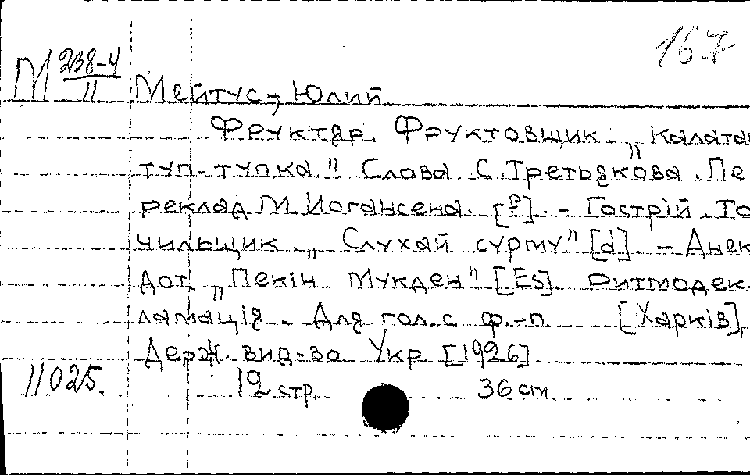 167
М 238-4
II
Мейтус, Юлий
Фруктяр. Фруктовщик. „Калата
туп-тупка." Слова С. Третьякова. Пе
реклад М. Иогансена. [g]. - Гострій. То
чильщик. „Слухай сурму" [d] - Анек
дот „Пекін Мукден" [Es]. Ритмодек
ламація. Для гол. с ф.-п. [Харків],
Держ. вид-во Укр [1926]
11025. 12 стр. 36 cm.